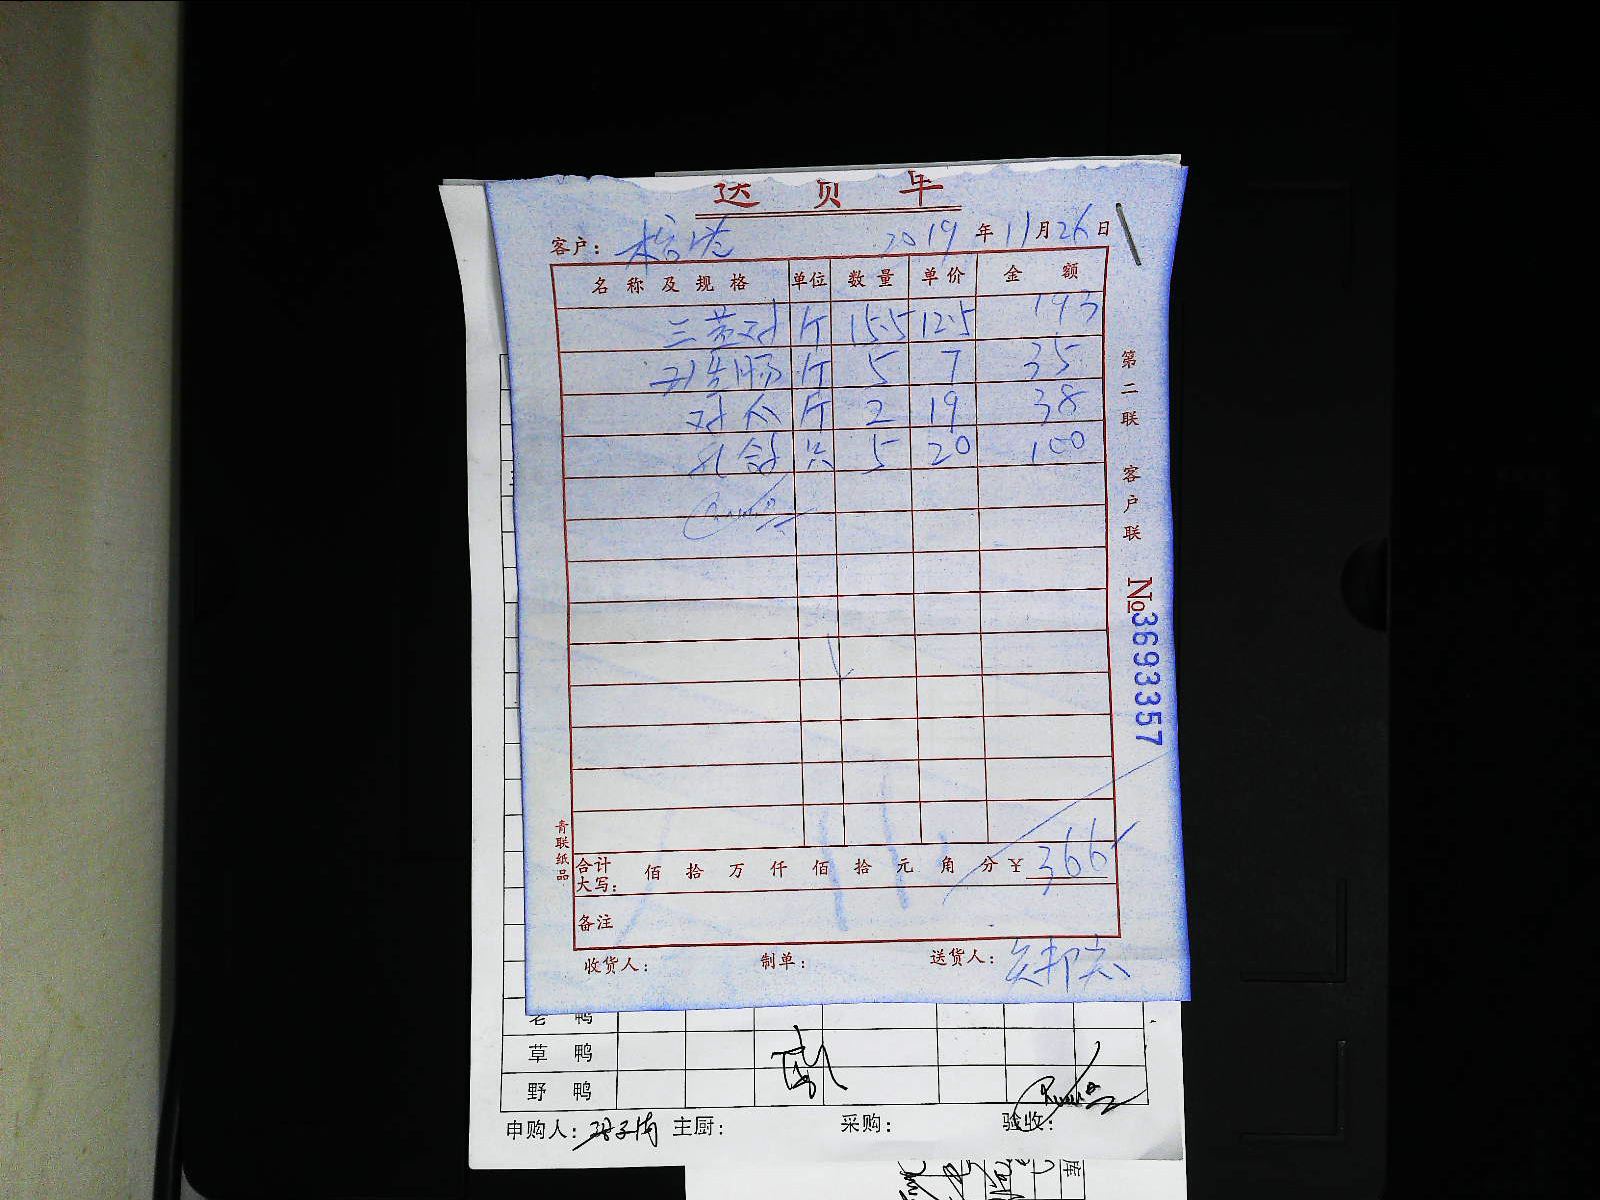 送 货 单
客户： 2019 年 11 月 26 日
名 称 及 规 格 单位 数 量 单 价 金 额
三黄 斤 15.5 12.5 193
肠 斤 5 7 35
斤 2 19 38
鸽 只 5 20 100
第二联 客户联
№3693357
青联纸品
合计大写： 佰 拾 万 仟 佰 拾 元 角 分 ￥ 366
备注
收货人： 制单： 送货人：
老 鸭
草 鸭
野 鸭
申购人： 主厨： 采购： 验收：
库